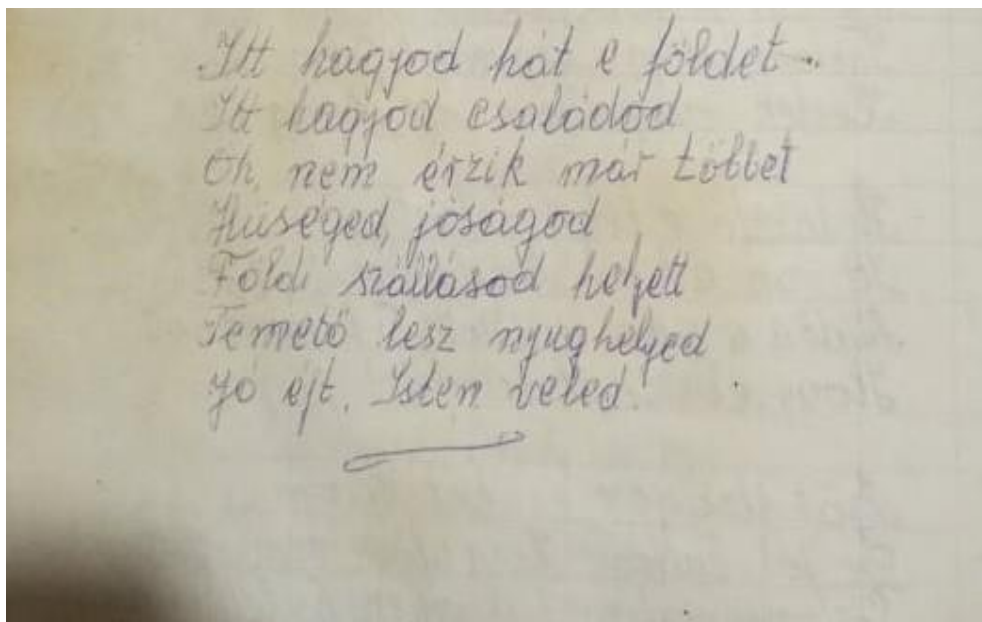 Itt hagyod hát e földet
Itt hagyod családod
Oh, nem érzik már többet
Hűséged, jóságod
Földi szállásod helyett
Temető lesz nyughelyed
Jó éjt, Isten veled.